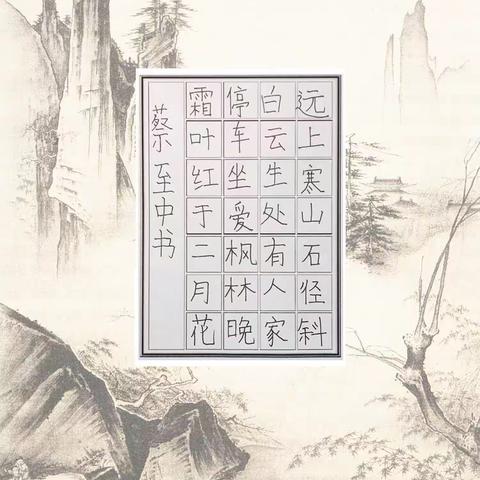 远上寒山石径斜
白云生处有人家
停车坐爱枫林晚
霜叶红于二月花
蔡至中书